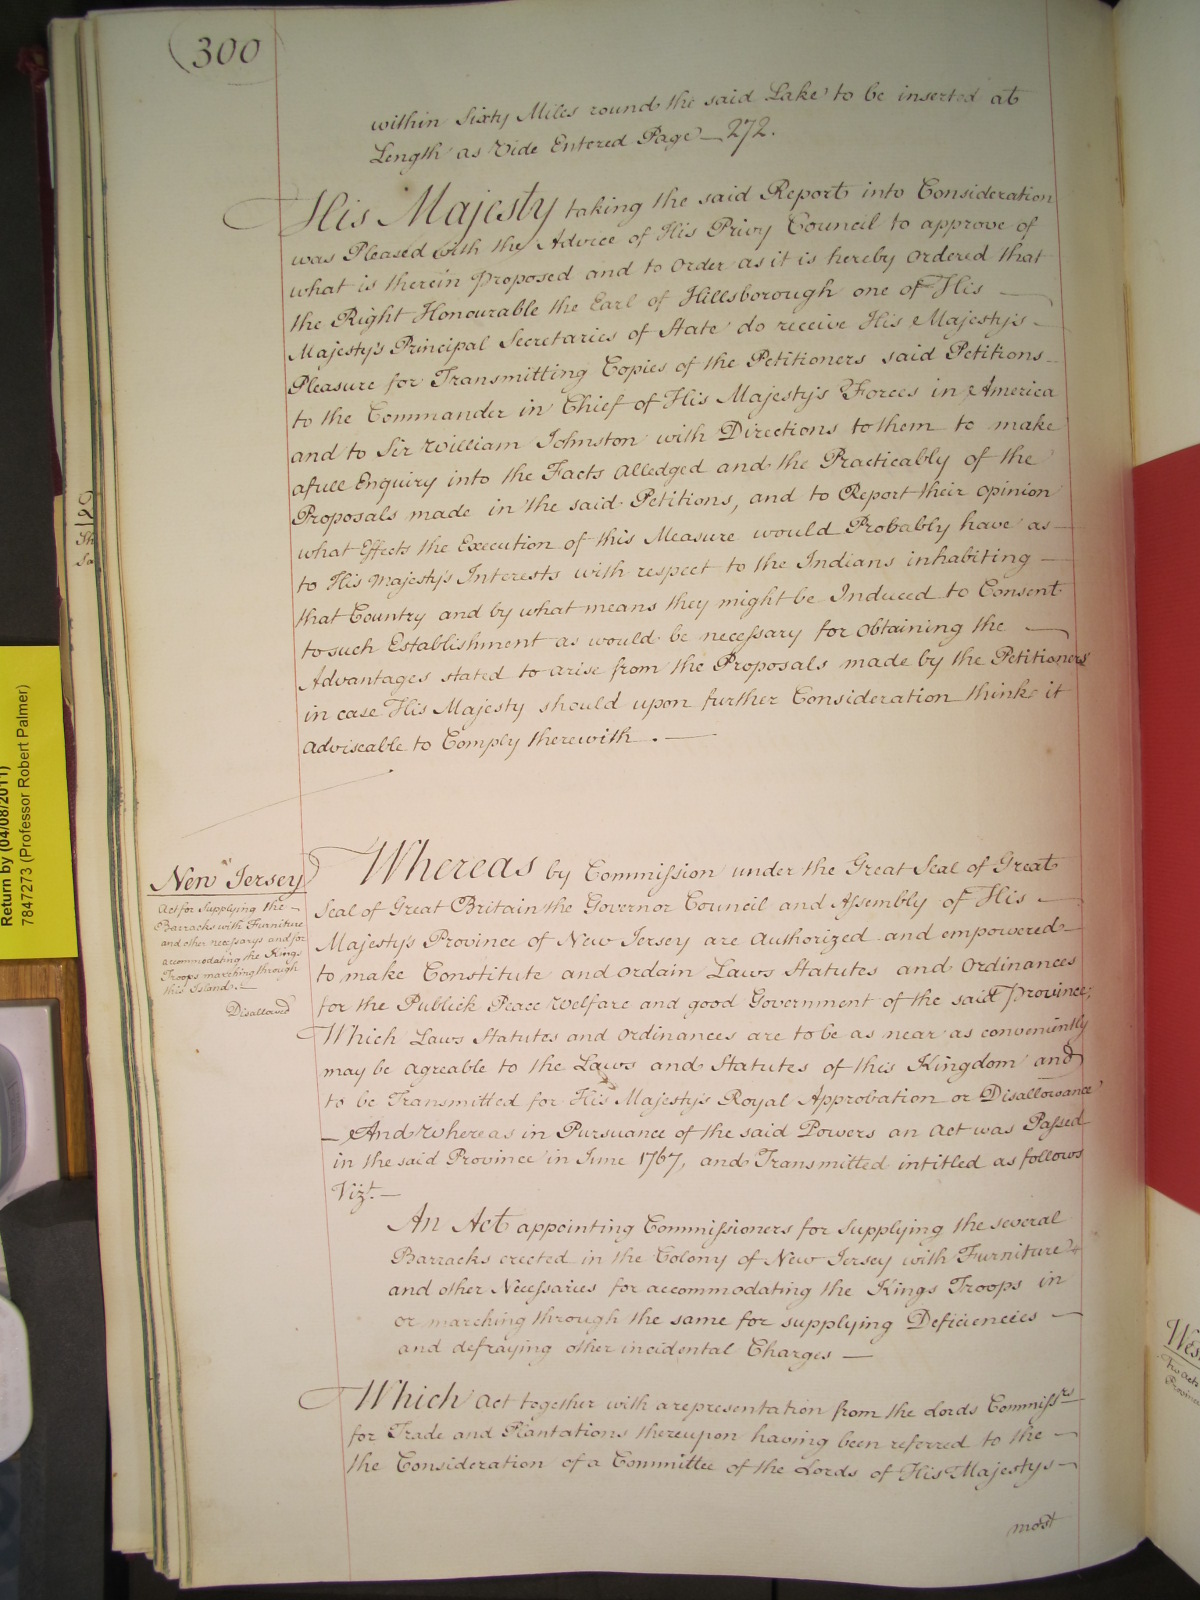 (300
within Sixty Miles round the said Lake to be inserted at
Length as Vide Entered Page — 272.
His Majesty taking the said Report into Consideration
was Pleased with the Advice of His Privy Council to approve of
what is therein proposed and to Order as it is hereby Ordered that
the Right Honourable the Earl of Hillsborough one of His —
Majesty's Principal Secretaries of State do receive His Majesty's —
Pleasure for Transmitting Copies of the Petitioners said Petitions —
to the Commander in Chief of His Majesty's Forces in America
and to Sir William Johnston with Directions to them to make
a full Enquiry into the Facts Alledged and the Practicably of the
Proposals made in the said Petitions, and to Report their Opinion
what Effects the Execution of this Measure would Probably have as —
to His Majesty's Interests with respect to the Indians inhabiting —
that Country and by what means they might be Induced to Consent
to such Establishment as would be necessary for Obtaining the —
Advantages stated to arise from the Proposals made by the Petitioners
in case His Majesty should upon further Consideration think it
adviseable to Comply therewith. —
New Jersey
Act for Supplying the —
Barracks with Furniture
and other necessarys and for
accommodating the Kings
Troops marching through
this Island. —
Disallowed
Whereas by Commission under the Great Seal of Great
Seal of Great Britain the Governor Council and Assembly of His —
Majesty's Province of New Jersey are Authorized and empowered —
to make Constitute and Ordain Laws Statutes and Ordinances
for the Publick Peace Welfare and good Government of the said Province;
Which Laws Statutes and Ordinances are to be as near as conveniently
may be agreable to the Laws and Statutes of this Kingdom and
to be Transmitted for His Majesty's Royal Approbation or Disallowance
— And Whereas in Pursuance of the said Powers an Act was Passed
in the said Province in June 1767, and Transmitted intitled as follows
Vizt. —
An Act appointing Commissioners for Supplying the several
Barracks erected in the Colony of New Jersey with Furniture
and other Necessaries for accommodating the Kings Troops in
or marching through the same for supplying Deficiencies —
and defraying other incidental Charges —
Which Act together with a representation from the Lords Commissrs
for Trade and Plantations thereupon having been referred to the —
the Consideration of a Committee of the Lords of His Majestys —
most
Return by (04/08/2011)
7847273 (Professor Robert Palmer)